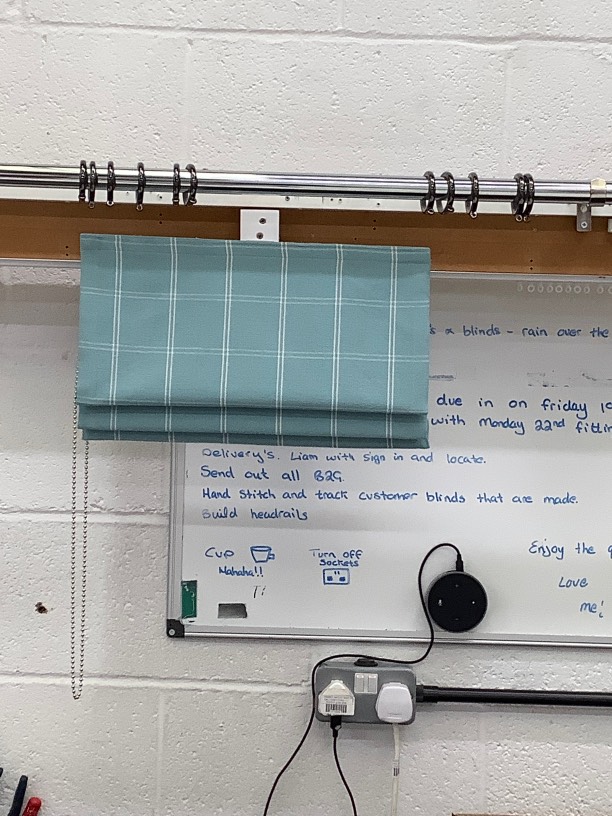 & blinds - rain over the
due in on friday
with Monday 22nd
Delivery's. Liam with sign in and locate.
Send out all B2G.
Hand stitch and track customer blinds that are made.
Build headrails
Cup
Mahaha!!
Turn off
Sockets
Enjoy the
Love
me!